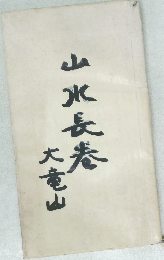 山水長巻
大竜山